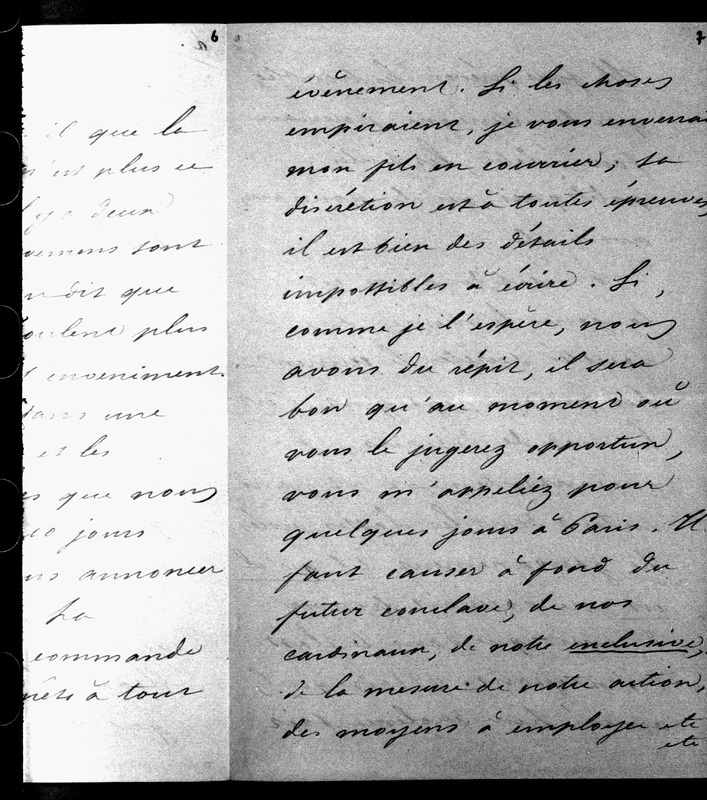 6
il que la
n'est plus ce
il y a deux
vemens sont
on dit que
veulent plus
s'enveniment.
dans une
et les
es que nous
10 jours
ns annoncer
La
commande
prêts à tout
7
évènement. Si les choses
empiraient, je vous enverrai
mon fils en courrier; sa
discrétion est à toutes épreuves,
il est bien des détails
impossibles à écrire. Si,
comme je l'espère, nous
avons du répit, il sera
bon qu'au moment où
vous le jugerez opportun,
vous m'appeliez pour
quelques jours à Paris. Il
faut causer à fond du
futur conclave, de nos
cardinaux, de notre exclusive,
de la mesure de notre action,
des moyens à employer etc
etc